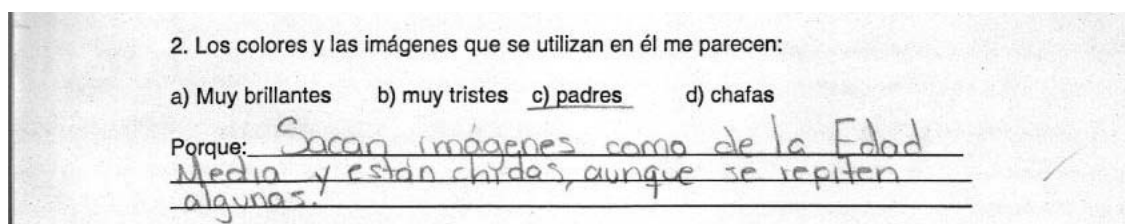 2. Los colores y las imágenes que se utilizan en él me parecen:
a) Muy brillantes b) muy tristes c) padres d) chafas
Porque: Sacan imágenes como de la Edad
Media y están chidas, aunque se repiten
algunas.